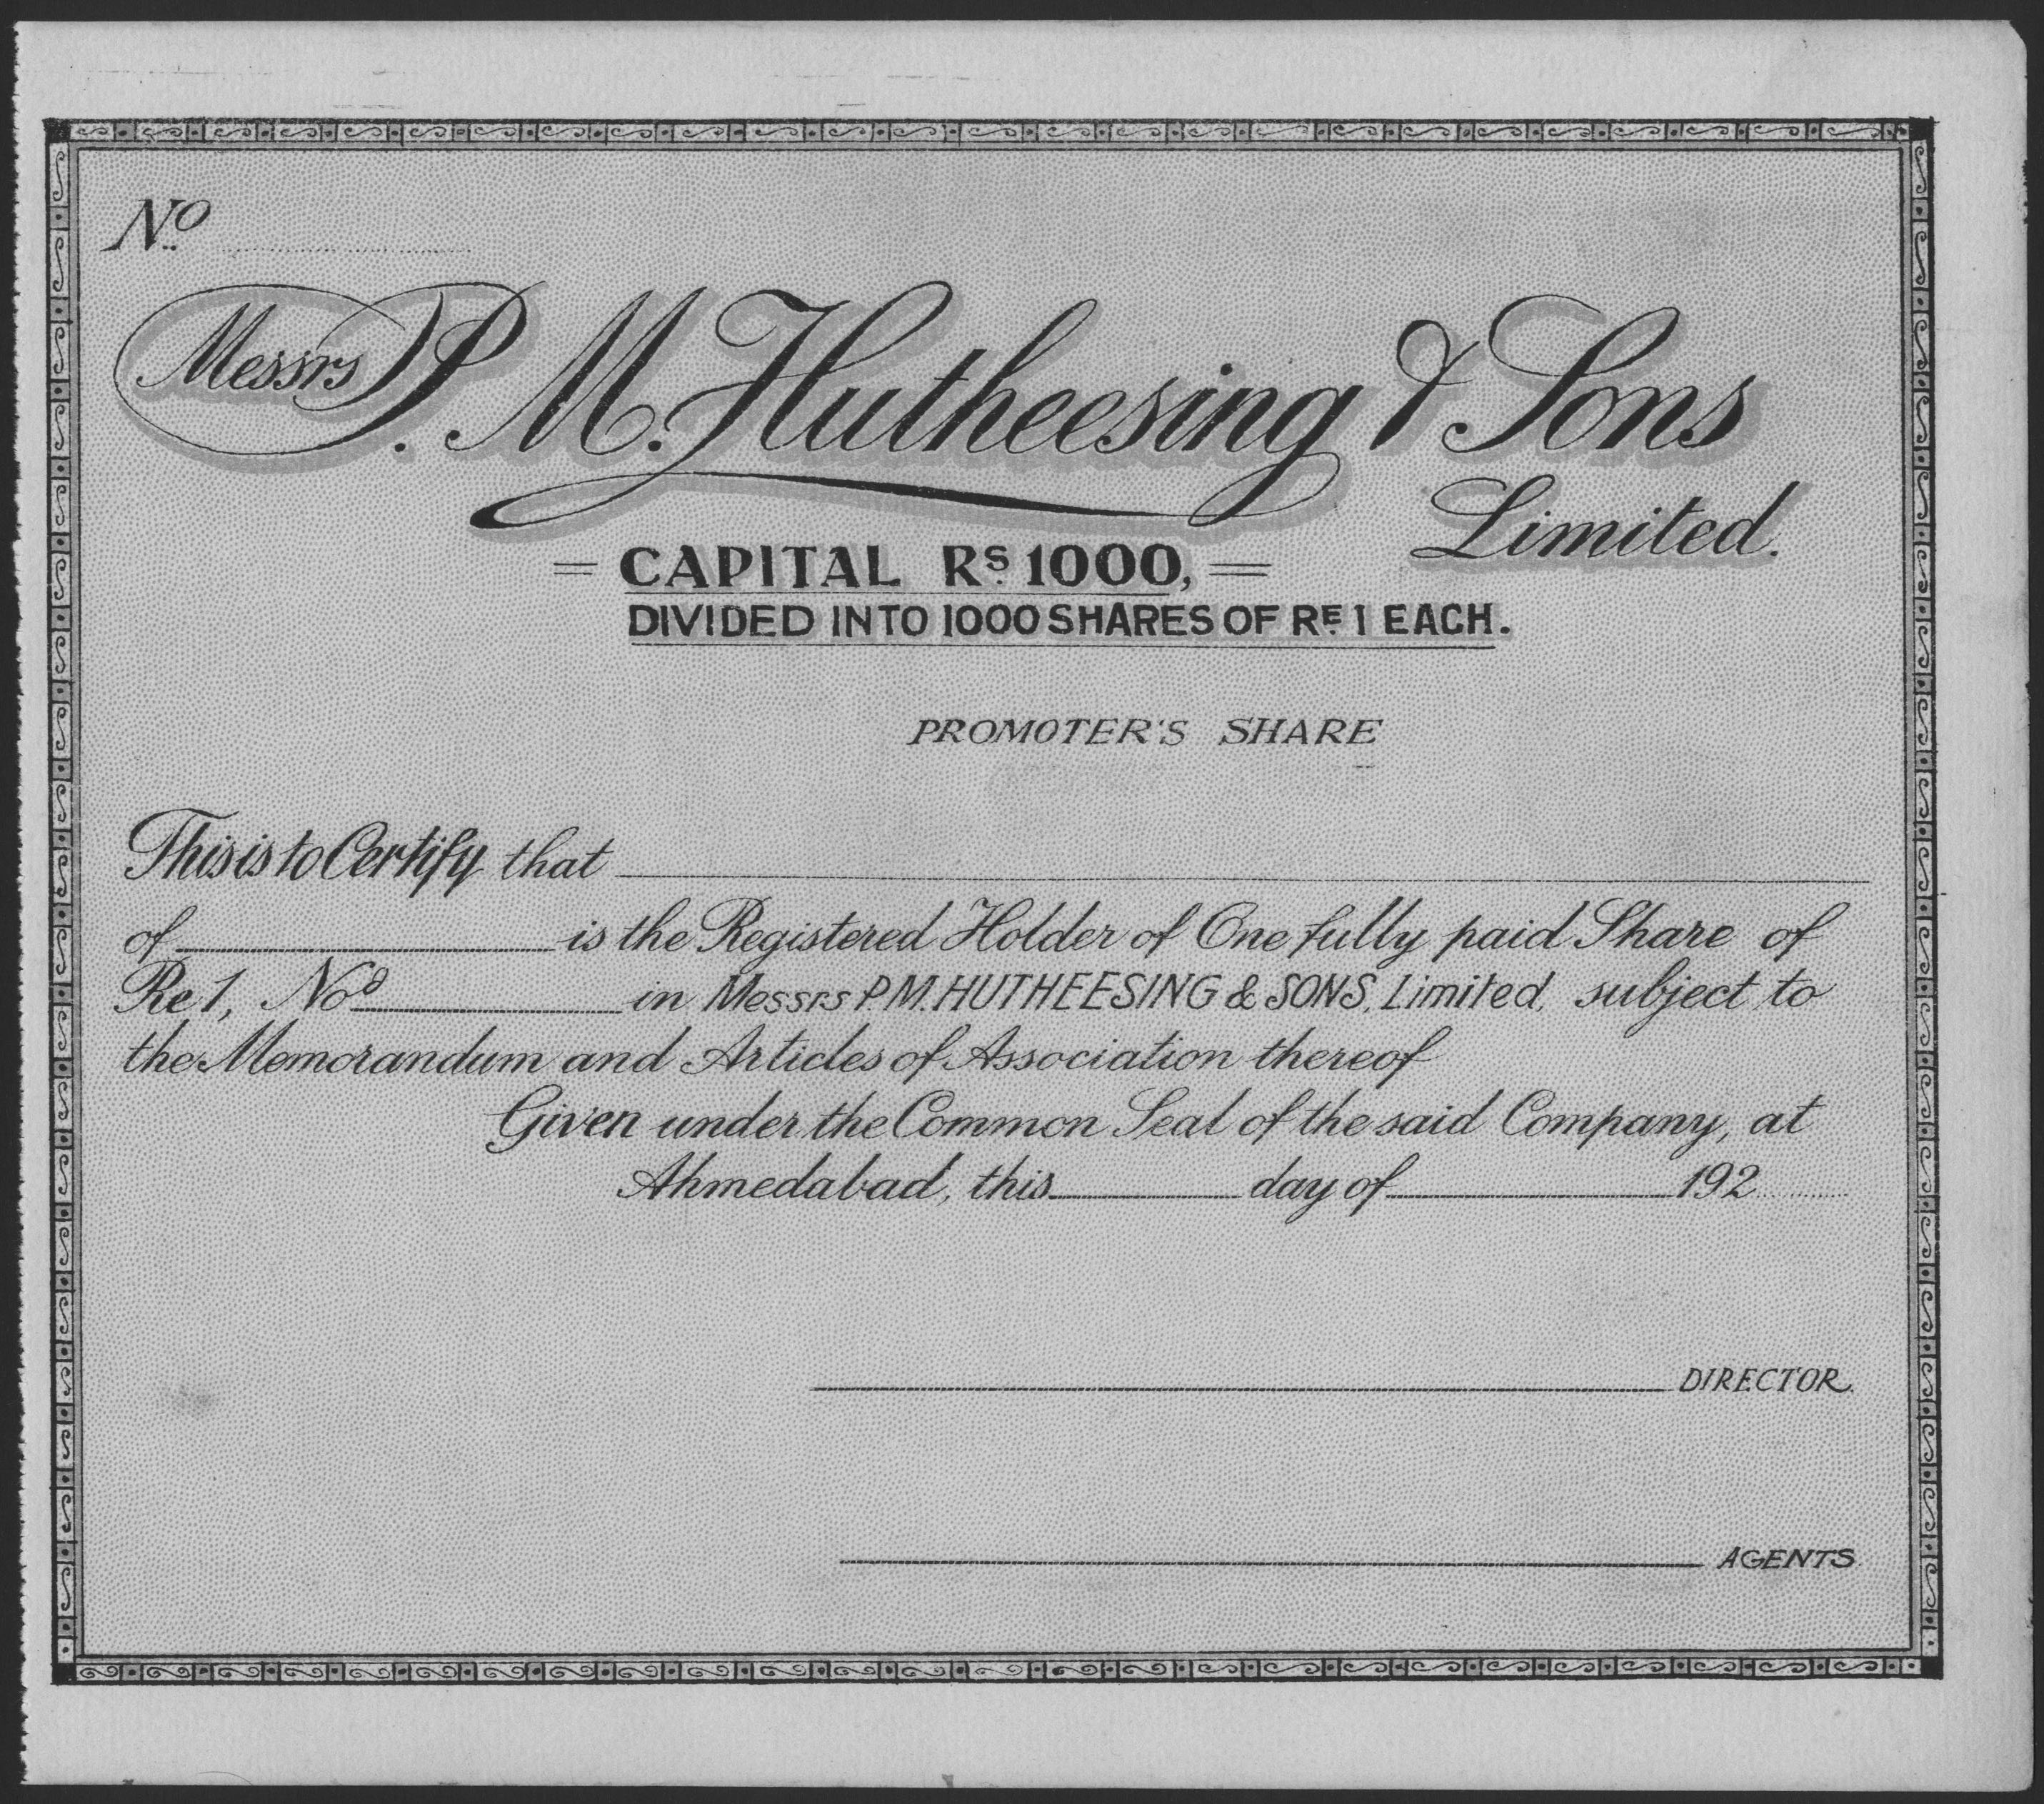 No.
Messrs P. M. Hutheesing & Sons
Limited.
= CAPITAL Rs. 1000, =
DIVIDED INTO 1000 SHARES OF RE. 1 EACH.
PROMOTER'S SHARE
This is to Certify that
of is the Registered Holder of One fully paid Share of
Re 1, No in Messrs P. M. HUTHEESING & SONS, Limited, subject to
the Memorandum and Articles of Association thereof
Given under the Common Seal of the said Company, at
Ahmedabad, this day of 192
DIRECTOR.
AGENTS